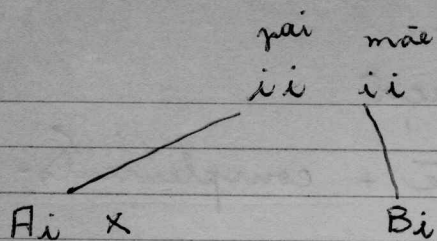 pai mãe
ii ii
Ai x Bi